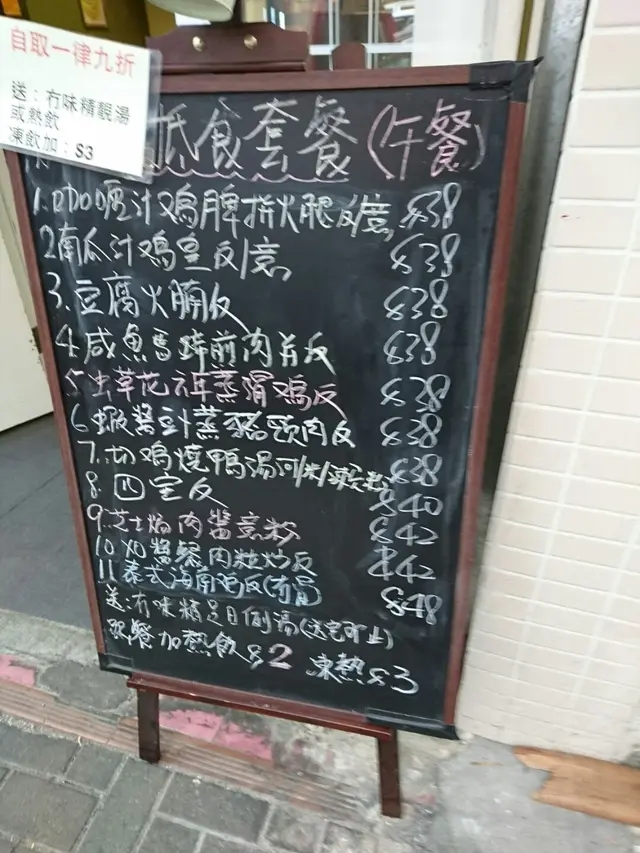 自取一律九折
送：冇味精靚湯
或熱飲
凍飲加：$3
抵食套餐(午餐)
1.咖喱汁鸡脾拼火腿反/意 $38
2.南瓜汁鸡皇反/意 $38
3.豆腐火腩反 $38
4.咸魚馬蹄煎肉片反 $38
5.虫草花云耳蒸滑鸡反 $38
6.蝦醬豆汁蒸豬頸肉反 $38
7.切鸡燒鴨湯河/ $38
8.四宝反 $40
9.芝士焗肉醬意粉 $42
10.XO醬 肉粒炒反 $42
11.泰式海南鸡反(有骨) $48
送:冇味精足日例湯(送完即止)
跟餐加熱飲$2 凍熱$3